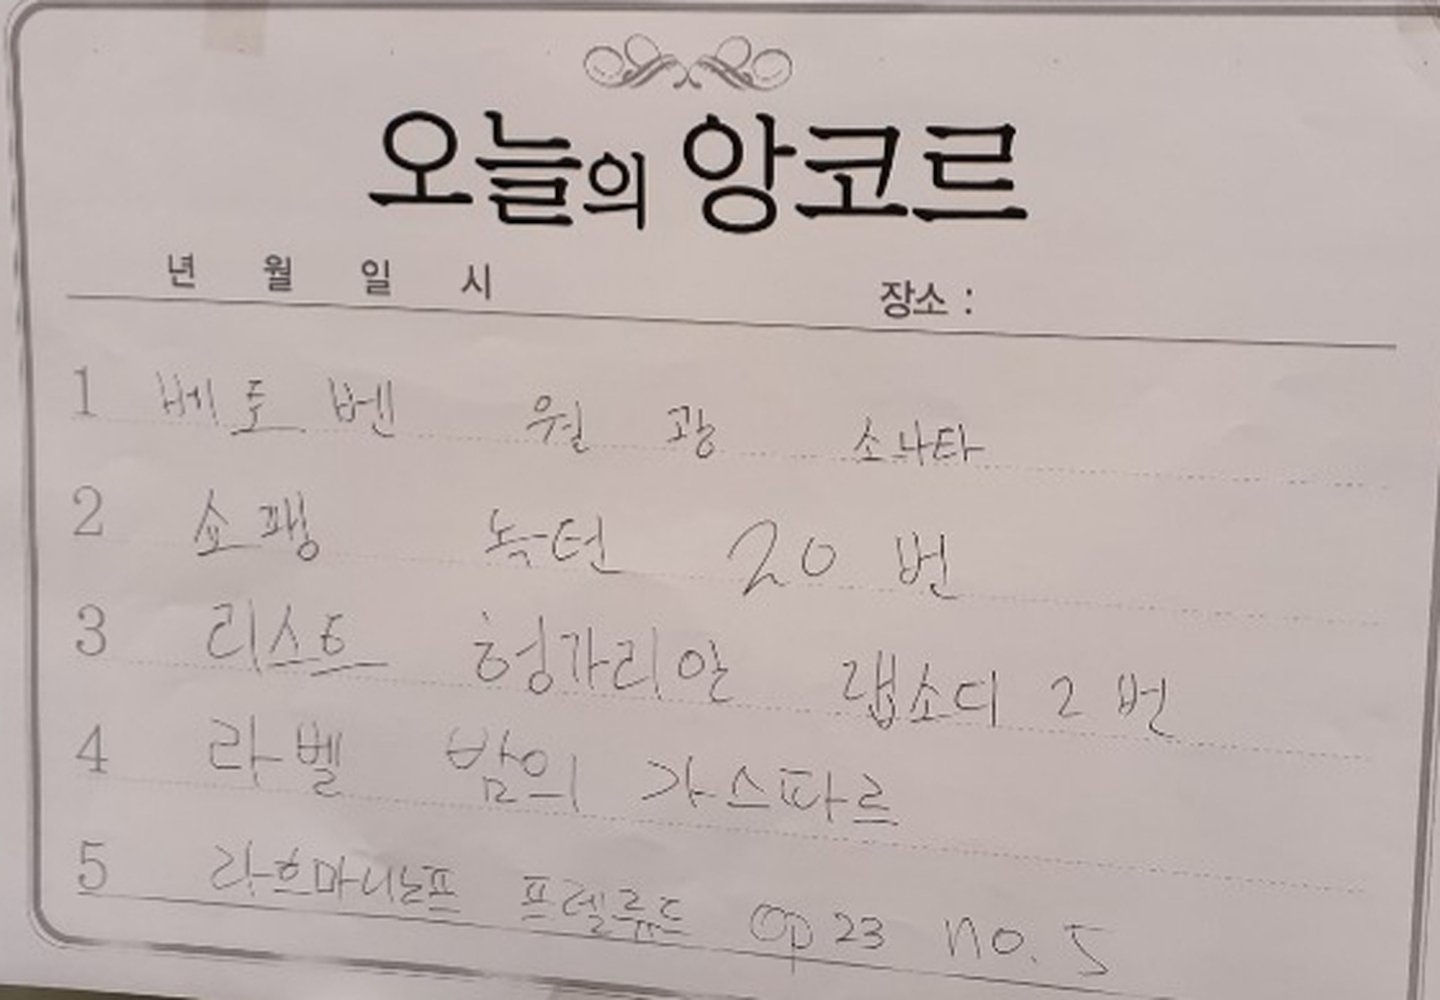 오늘의 앙코르
년 월 일 시 장소 :
1 베토벤 월광 소나타
2 쇼팽 녹턴 20번
3 리스트 헝가리안 랩소디 2번
4 라벨 밤의 가스파르
5 라흐마니노프 프렐류드 op 23 no. 5